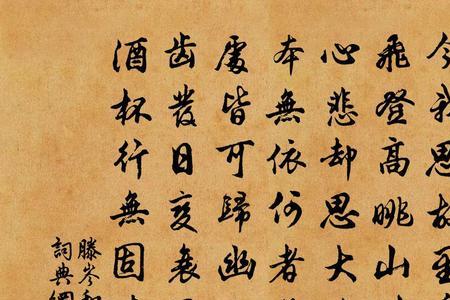 今我思故
飛登高眺山
心悲却思大
本無依何者
處皆可歸幽
齿發日变衰
酒杯行無固
滕岑和
詞典網